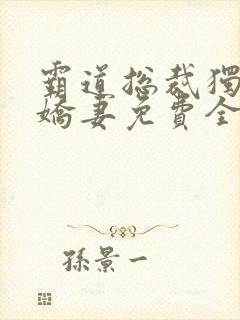 霸道总裁獨
嬌妻免費全
孫景一